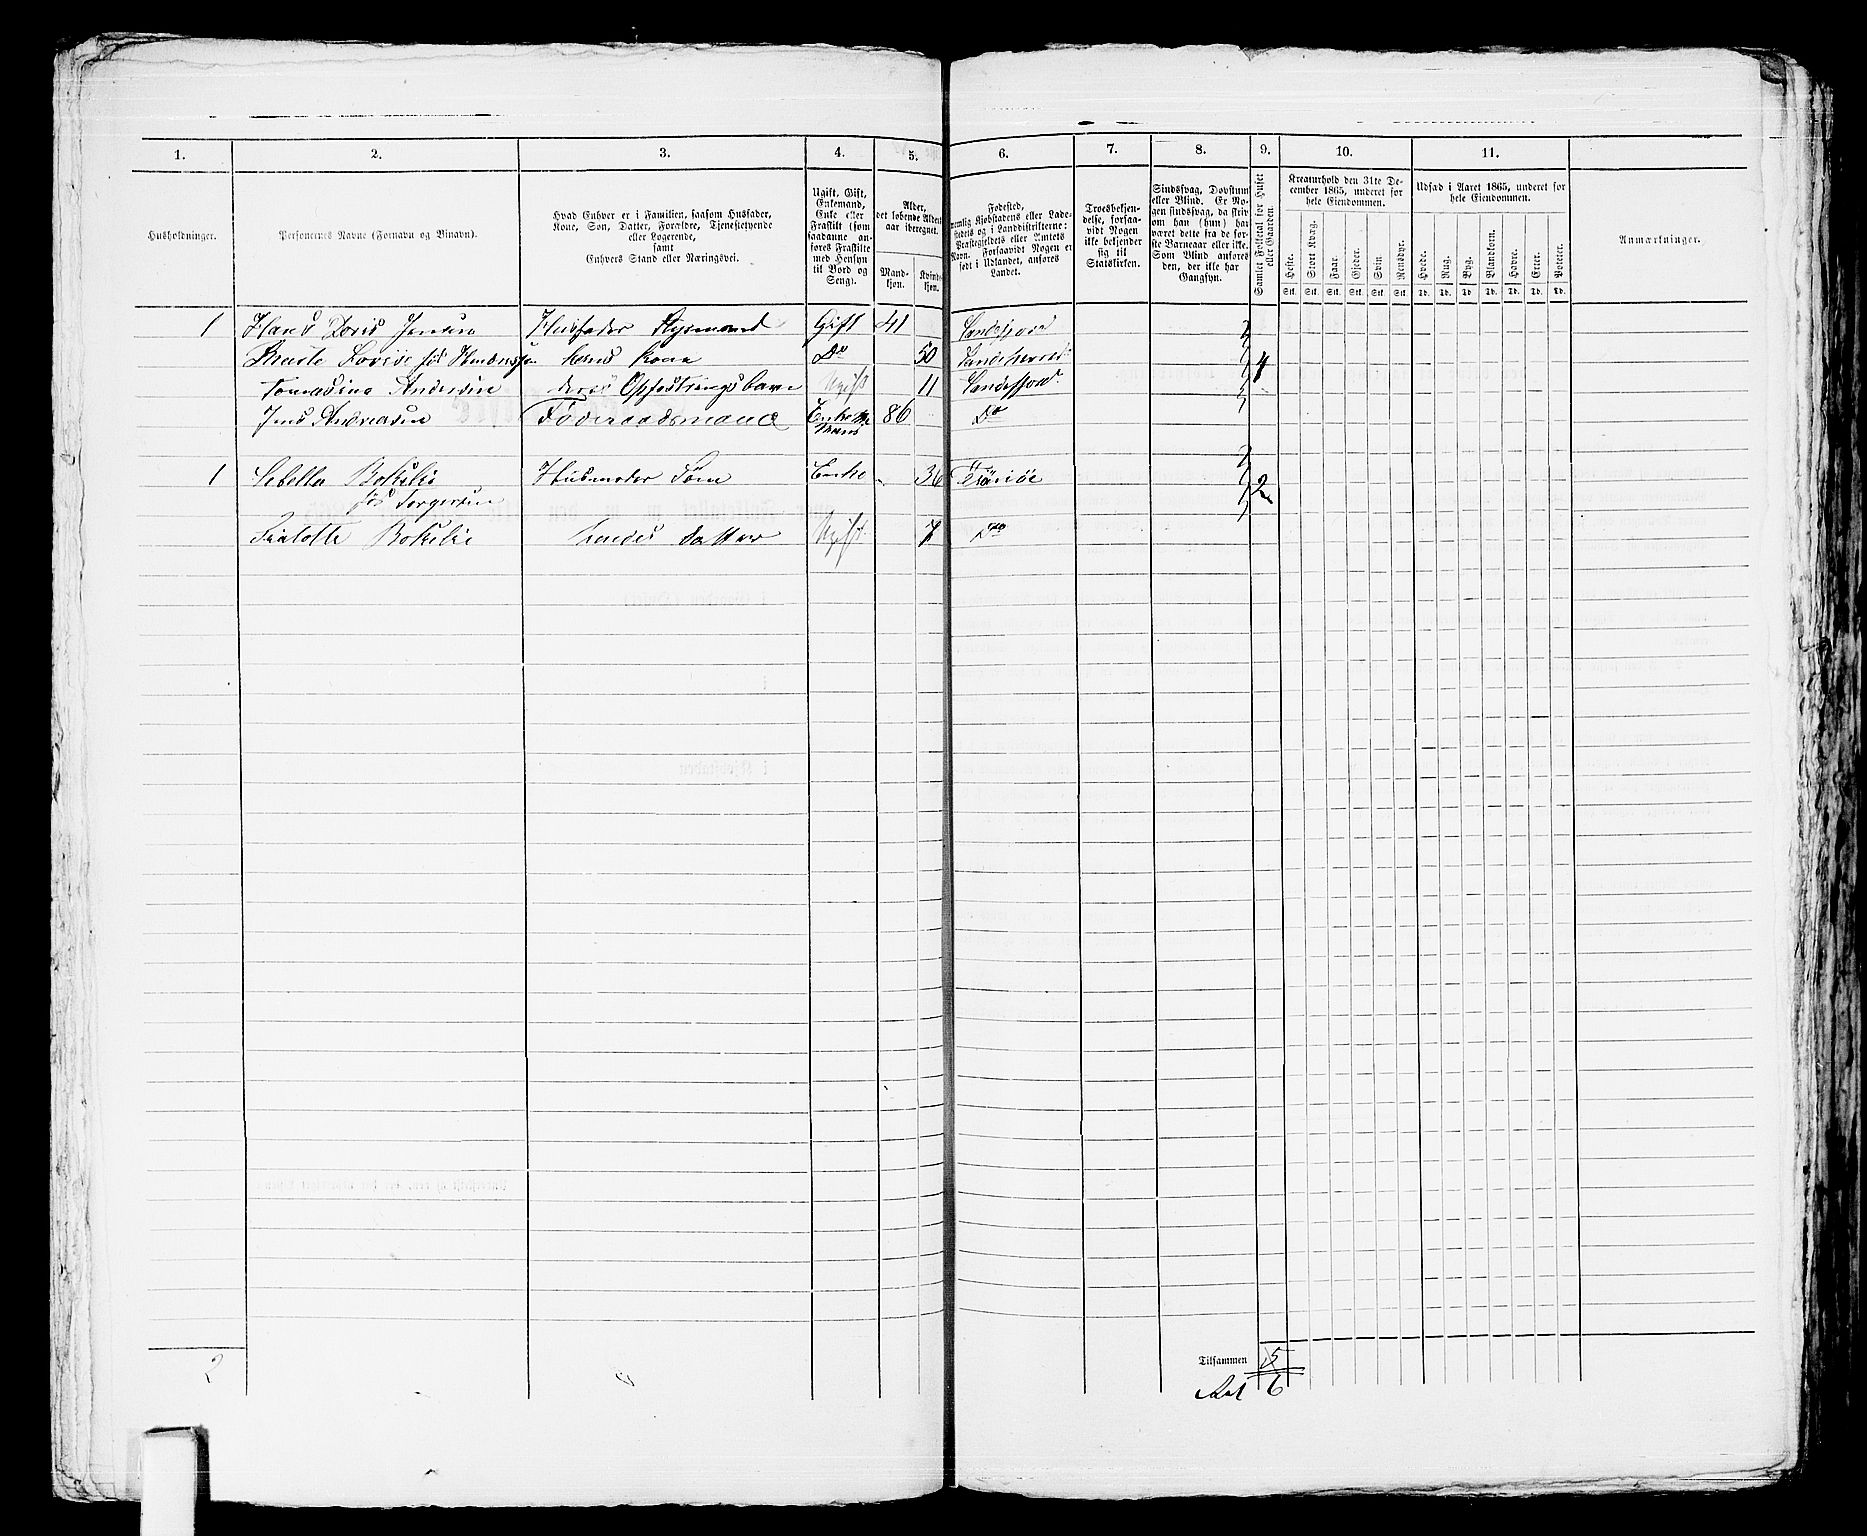 1. 2. 3. 4. 5. 6. 7. 8. 9. 10. 11.
Husholdninger.
Personernes Navne (Fornavn og Binavn).
Hvad Enhver er i Familien, saasom Husfader,
Kone, Søn, Datter, Forældre, Tjenestetyende
eller Logerende,
samt
Enhvers Stand eller Næringsvei.
Ugift, Gift,
Enkemand,
Enke eller
Fraskilt (som
saadanne an-
føres Fraskilte
med Hensyn
til Bord og
Seng).
Alder,
det løbende Alders-
aar iberegnet.
Mand-
kjøn.
Kvinde-
kjøn.
Fødested,
nemlig Kjøbstadens eller Lade-
stedets og i Landdistrikterne:
Præstegjeldets eller Amtets
Navn. Forsaavidt Nogen er
født i Udlandet, anføres
Landet.
Troesbekjen-
delse, forsaa-
vidt Nogen
ikke bekjender
sig til
Statskirken.
Sindssvag, Døvstum
eller Blind. Er No-
gen sindssvag, da skriv
om han (hun) har
været dette fra de før-
ste Barneaar eller ikke.
Som Blind anføres
den, der ikke har
Gangsyn.
Samlet Folketal for Huset
eller Gaarden.
Kreaturhold den 31te De-
cember 1865, underet for
hele Eiendommen.
Heste. Stort Kvæg. Faar. Gjeder. Svin. Rensdyr.
Stk. Stk. Stk. Stk. Stk. Stk.
Udsæd i Aaret 1865, underet for
hele Eiendommen.
Hvede. Rug. Byg. Blandkorn. Havre. Erter. Poteter.
Td. Td. Td. Td. Td. Td. Td.
Anmærkninger.
1 Hans Jensen Husfader Gift 41 Sandefjord
Do 50 4
Tomasine Andersen deres Opfostringsbarn Ugift 11 Sandefjord
Jens Andersen Føderaadsmand 86 Do
1 Husmoder Enke 36 2
født Torgersen
hendes Datter Ugift 7 Do
2
Tilsammen 5
6